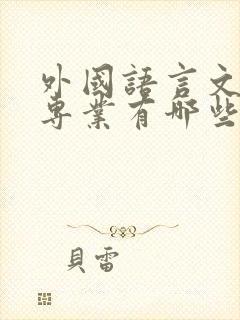 外國語言文
專業有哪些
貝雷